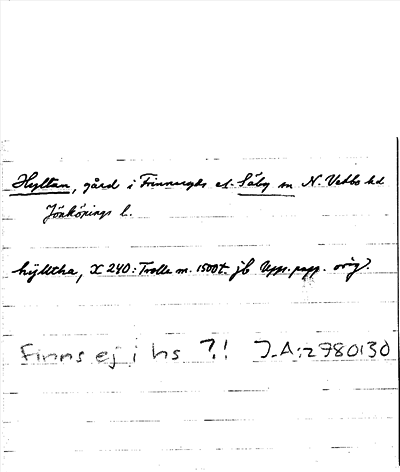 Hyltan, gård i Frinnaryds el. Säby sn N. Vedbo hd
Jönköpings l.
hÿlltha, X 240: Trolle m. 1500t. jb Upps. papp. orig.
Finns ej i hs ?! J.A:2980130